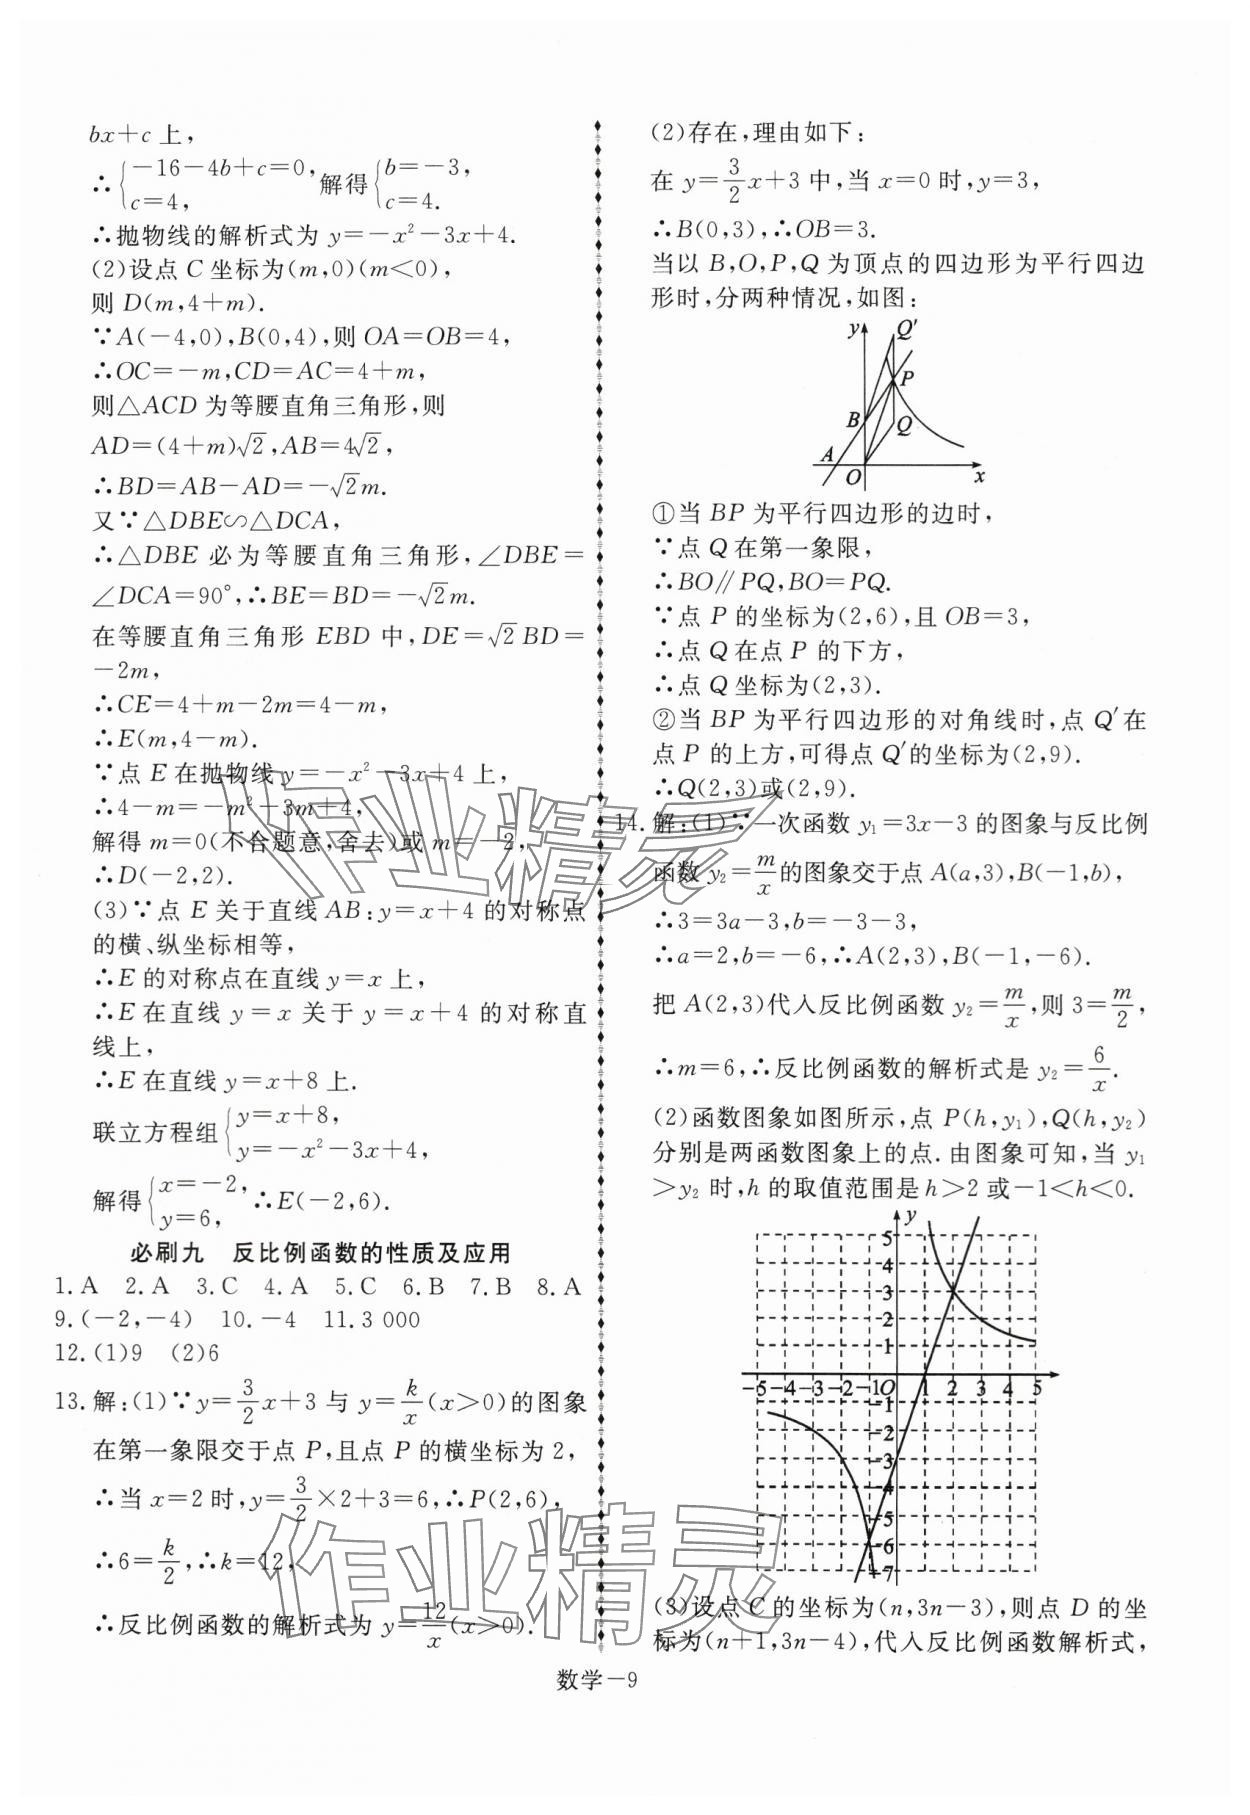 bx+c 上,
∴{−16−4b+c=0, c=4, 解得{b=−3, c=4.
∴抛物线的解析式为 y=−x²−3x+4.
(2)设点 C 坐标为(m,0)(m<0),
则 D(m,4+m).
∵A(−4,0),B(0,4),则 OA=OB=4,
∴OC=−m,CD=AC=4+m,
则△ACD 为等腰直角三角形,则
AD=(4+m)√2,AB=4√2,
∴BD=AB−AD=−√2m.
又∵△DBE∽△DCA,
∴△DBE 必为等腰直角三角形,∠DBE=
∠DCA=90°,∴BE=BD=−√2m.
在等腰直角三角形 EBD 中,DE=√2BD=
−2m,
∴CE=4+m−2m=4−m,
∴E(m,4−m).
∵点 E 在抛物线 y=−x²−3x+4 上,
∴4−m=−m²−3m+4,
解得 m=0(不合题意,舍去)或 m=−2,
∴D(−2,2).
(3)∵点 E 关于直线 AB:y=x+4 的对称点
的横、纵坐标相等,
∴E 的对称点在直线 y=x 上,
∴E 在直线 y=x 关于 y=x+4 的对称直
线上,
∴E 在直线 y=x+8 上.
联立方程组{y=x+8, y=−x²−3x+4,
解得{x=−2, y=6, ∴E(−2,6).
必刷九 反比例函数的性质及应用
1.A 2.A 3.C 4.A 5.C 6.B 7.B 8.A
9.(−2,−4) 10.−4 11.3 000
12.(1)9 (2)6
13.解:(1)∵y=3/2x+3 与 y=k/x(x>0)的图象
在第一象限交于点 P,且点 P 的横坐标为 2,
∴当 x=2 时,y=3/2×2+3=6,∴P(2,6),
∴6=k/2,∴k=12,
∴反比例函数的解析式为 y=12/x(x>0).
(2)存在,理由如下:
在 y=3/2x+3 中,当 x=0 时,y=3,
∴B(0,3),∴OB=3.
当以 B,O,P,Q 为顶点的四边形为平行四边
形时,分两种情况,如图:
y Q′
P
B Q
A
O x
①当 BP 为平行四边形的边时,
∵点 Q 在第一象限,
∴BO∥PQ,BO=PQ.
∵点 P 的坐标为(2,6),且 OB=3,
∴点 Q 在点 P 的下方,
∴点 Q 坐标为(2,3).
②当 BP 为平行四边形的对角线时,点 Q′在
点 P 的上方,可得点 Q′的坐标为(2,9).
∴Q(2,3)或(2,9).
14.解:(1)∵一次函数 y₁=3x−3 的图象与反比例
函数 y₂=m/x的图象交于点 A(a,3),B(−1,b),
∴3=3a−3,b=−3−3,
∴a=2,b=−6,∴A(2,3),B(−1,−6).
把 A(2,3)代入反比例函数 y₂=m/x,则 3=m/2,
∴m=6,∴反比例函数的解析式是 y₂=6/x.
(2)函数图象如图所示,点 P(h,y₁),Q(h,y₂)
分别是两函数图象上的点.由图象可知,当 y₁
>y₂ 时,h 的取值范围是 h>2 或−1<h<0.
y
5
4
3
2
1
−5−4−3−2−1O 1 2 3 4 5
−1
−2
−3
−4
−5
−6
−7
(3)设点 C 的坐标为(n,3n−3),则点 D 的坐
标为(n+1,3n−4),代入反比例函数解析式,
数学−9
作业精灵
作业精灵